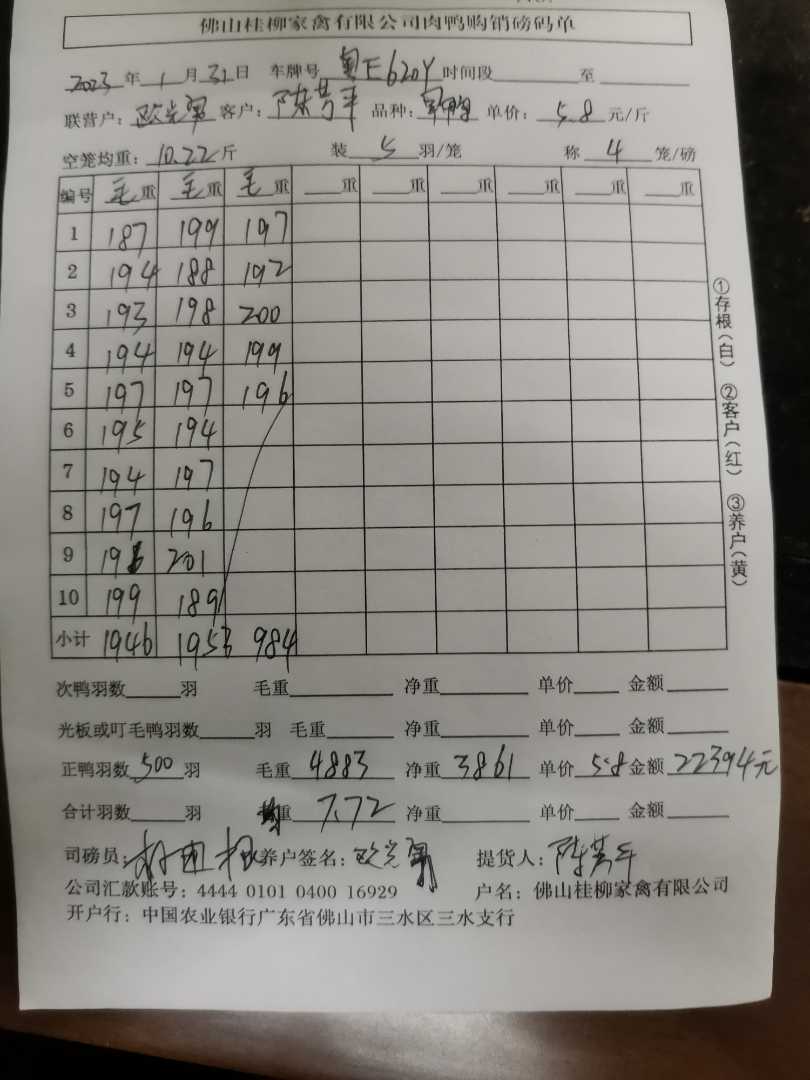 佛山桂柳家禽有限公司肉鸭购销磅码单
2023年1月31日 车牌号 粤E620Y 时间段 至
联营户: 客户: 陈芳平 品种: 单价: 5.8元/斤
空笼均重: 10.22斤 装5羽/笼 称4笼/磅
编号 毛重 毛重 毛重 重 重 重 重 重 重
1 187 199 197
2 194 188 192
3 193 198 200
4 194 194 199
5 197 197 196
6 195 194
7 194 197
8 197 196
9 196 201
10 199 189
小计 1946 1953 984
次鸭羽数 羽 毛重 净重 单价 金额
光板或叮毛鸭羽数 羽 毛重 净重 单价 金额
正鸭羽数500羽 毛重4883 净重3861 单价5.8 金额22394元
合计羽数 羽 均重7.72 净重 单价 金额
司磅员: 养户签名: 提货人: 陈芳平
公司汇款账号: 4444 0101 0400 16929 户名: 佛山桂柳家禽有限公司
开户行: 中国农业银行广东省佛山市三水区三水支行
①存根(白) ②客户(红) ③养户(黄)